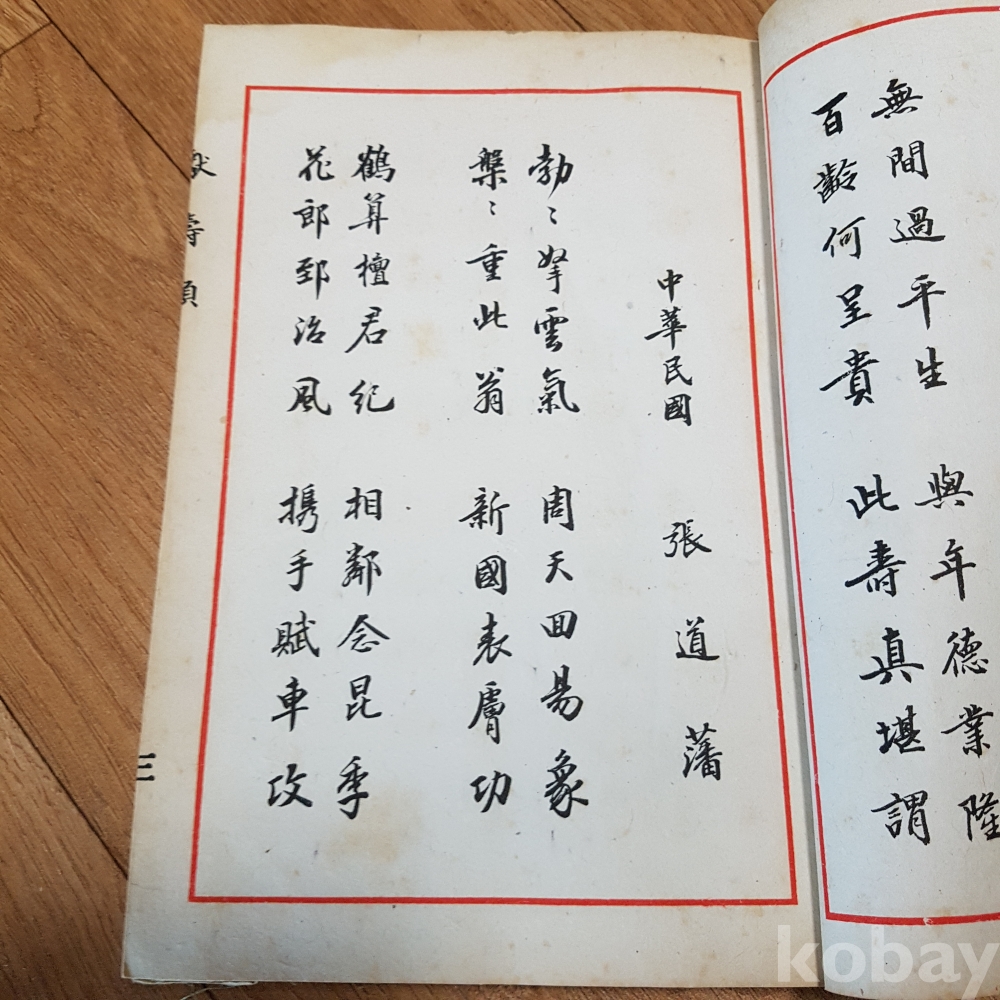 無間過平生 與年德業隆
百齡何呈貴 此壽真堪謂
中華民國 張道藩
勃〻拏雲氣 周天囬易象
槃〻重此翁 新國表膚功
鶴算檀君紀 相鄰念昆季
花郎郅治風 携手賦車攻
三
kobay